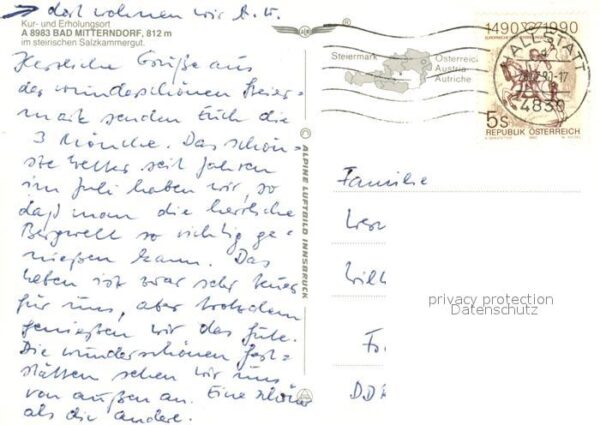 → dort wohnen wir z. Zt.
Kur- und Erholungsort
A 8983 BAD MITTERNDORF, 812 m
im steirischen Salzkammergut.
Herzliche Grüße aus
der wunderschönen Steier-
mark senden Euch die
3 Mönche. Das schön-
ste Wetter seit Jahren
im Juli haben wir, so
daß man die herrliche
Bergwelt so richtig ge-
nießen kann. Das
Leben ist zwar sehr teuer
für uns, aber trotzdem
genießen wir das Gute.
Die wunderschönen Gast-
stätten sehen wir uns
von außen an. Eine schöner
als die andere.
ALPINE LUFTBILD INNSBRUCK
Steiermark
Österreich
Austria
Autriche
1490 1990
HALLSTATT
4830
5s
REPUBLIK ÖSTERREICH
Familie
privacy protection
Datenschutz